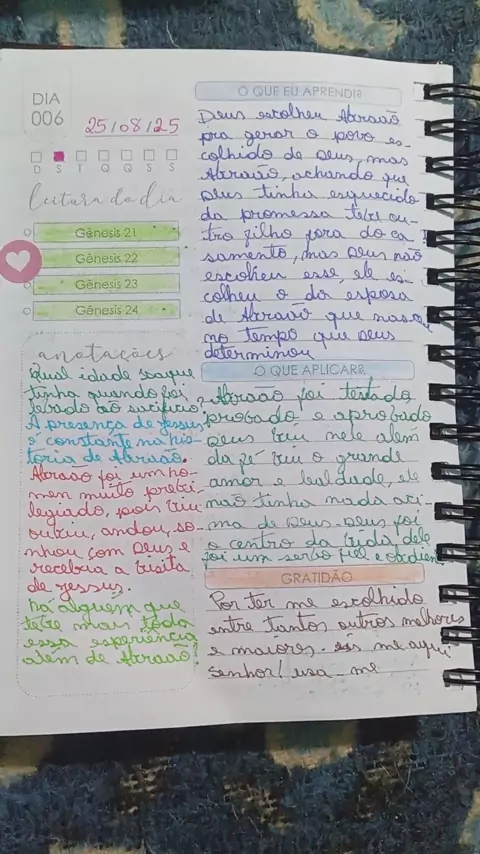 DIA
006
25/08/25
D S T Q Q S S
leitura do dia
Gênesis 21
Gênesis 22
Gênesis 23
Gênesis 24
anotações
Qual idade isaque
tinha quando foi
levado ao sacrifício?
A presença de jesus
é constante na his-
tória de Abraão.
Abraão foi um ho-
mem muito previ-
legiado, pois viu
ouviu, andou, so-
nhou com Deus e
recebeu a visita
de jessus.
há alguém que
teve mais toda
essa experiência
além de Abraão?
O QUE EU APRENDI?
Deus escolheu Abraaõ
pra gerar o povo es-
colhido de Deus, mas
Abraão, achando que
Deus tinha esquecido
da promessa teve ou-
tro filho fora do ca
samento, mas Deus não
escolheu esse, ele es-
colheu o da esposa
de Abraão que nasceu
no tempo que Deus
determinou
O QUE APLICAR?
Abraão foi testado
probado e aprobado
Deus viu nele alem
da fé viu o grande
amor e lealdade, ele
não tinha nada aci-
ma de Deus. Deus foi
o centro da vida dele
foi um servo fiel e obedien
GRATIDÃO
Por ter me escolhido
entre tantos outros melhores
e maiores. eis me aqui
senhor! usa-me